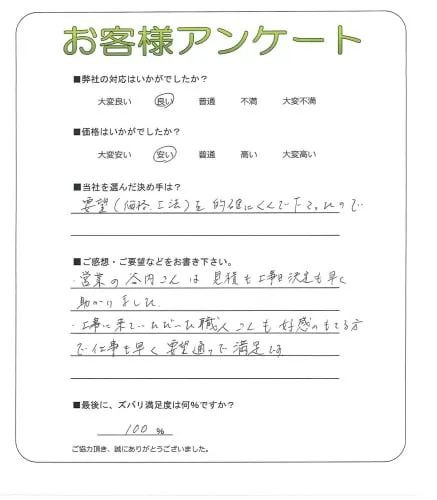 お客様アンケート
■弊社の対応はいかがでしたか？
大変良い 良い 普通 不満 大変不満
■価格はいかがでしたか？
大変安い 安い 普通 高い 大変高い
■当社を選んだ決め手は？
要望(価格.工法)を的確にくんで下さったので
■ご感想・ご要望などをお書き下さい。
・営業の谷内さんは見積も工事日決定も早く
助かりました
・工事に来ていただいた職人さんも好感のもてる方
で仕事も早く要望通りで満足です
■最後に、ズバリ満足度は何%ですか？
100 %
ご協力頂き、誠にありがとうございました。